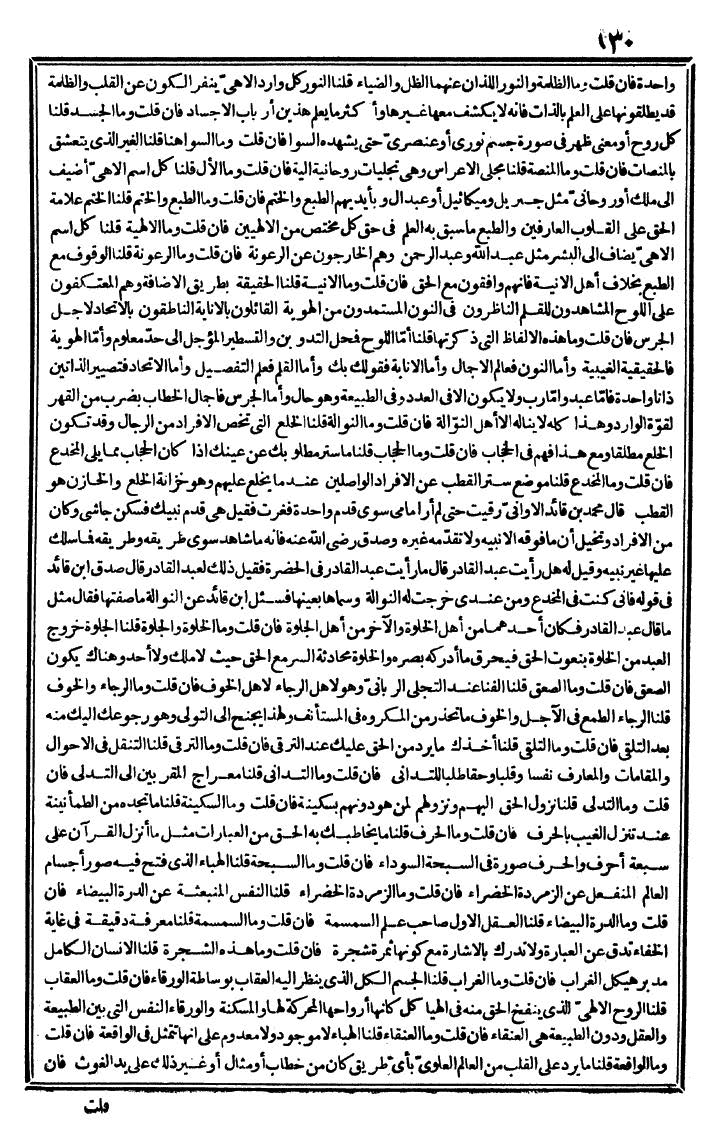 ١٣٠
واحدة فان قلت وما الظلمة والنور اللذان عنهما الظل والضياء قلنا النور كل وارد الاهىّ ينفر الكون عن القلب والظلمة
قد يطلقونها على العلم بالذات فانه لا يكشف معها غيرها وأكثر ما يعلم هذين أرباب الاجساد فان قلت وما الجسد قلنا
كل روح أو معنى ظهر فى صورة جسم نورى أو عنصرىّ حتى يشهده السوا فان قلت وما السوا هنا قلنا الغير الذى يتعشق
بالمنصات فان قلت وما المنصة قلنا مجلى الاعراس وهى تجليات روحانية الية فان قلت وما الأل قلنا كل اسم الاهىّ أضيف
الى ملك أو روحانىّ مثل جبريل وميكائيل أو عبدال و بأيديهم الطبع والختم فان قلت وما الطبع والختم قلنا الختم علامة
الحق على القلوب العارفين والطبع ما سبق به العلم فى حق كل مختص من الالهيين فان قلت وما الالهية قلنا كل اسم
الاهىّ يضاف الى البشر مثل عبد الله وعبد الرحمن وهم الخارجون عن الرعونة فان قلت وما الرعونة قلنا الوقوف مع
الطبع بخلاف أهل الانية فانهم واقفون مع الحق فان قلت وما الانية قلنا الحقيقة بطريق الاضافة وهم المعتكفون
على اللوح المشاهدون للقلم الناظرون فى النون المستمدون من الهوية القائلون بالانابة الناطقون بالاتحاد لاجل
الجرس فان قلت وما هذه الالفاظ التى ذكرتها قلنا أمّا اللوح فحل التدوين والتسطير المؤجل الى حدّ معلوم وأمّا الهوية
فالحقيقية الغيبية وأما النون فعالم الاجال وأما الانابة فقولك بك وأما القلم فعلم التفصيل وأما الاتحاد فتصيير الذاتين
ذاتا واحدة فامّا عبد وامّا رب ولا يكون الا فى العدد وفى الطبيعة وهو حال وأما الجرس فاجال الخطاب بضرب من القهر
لقوة الوارد وهذا كله لا يناله الا أهل النوّالة فان قلت وما النوالة قلنا الخلع التى تخص الافراد من الرجال وقد تكون
الخلع مطلقا ومع هذا فهم فى الحجاب فان قلت وما الحجاب قلنا ما ستر مطلوبك عن عينك اذا كان الحجاب مما يلى المخدع
فان قلت وما المخدع قلنا موضع ستر القطب عن الافراد الواصلين عند ما يخلع عليهم وهو خزانة الخلع والخازن هو
القطب قال محمد بن قائد الاوانىّ رقيت حتى لم أرا مامى سوى قدم واحدة فغرت فقيل هى قدم نبيك فسكن جاشى وكان
من الافراد وتخيل أن ما فوقه الا نبيه ولا تقدّمه غيره وصدق رضى الله عنه فانه ما شاهد سوى طريقه وطريقه فاسلك
عليها غير نبيه وقيل له هل رأيت عبد القادر قال ما رأيت عبد القادر فى الحضرة فقيل ذلك لعبد القادر قال صدق ابن قائد
فى قوله فانى كنت فى المخدع ومن عندى خرجت له النوالة وسماها بعينها فسئل ابن قائد عن النوالة ما صفتها فقال مثل
ما قال عبد القادر فكان أحدهما من أهل الخلوة والآخر من أهل الجلوة فان قلت وما الخلوة والجلوة قلنا الجلوة خروج
العبد من الخلوة بنعوت الحق فيحرق ما أدركه بصره والخلوة محادثة السر مع الحق حيث لا ملك ولا أحد وهناك يكون
الصعق فان قلت وما الصعق قلنا الفنا عند التجلى الربانىّ وهو لاهل الرجاء لاهل الخوف فان قلت وما الرجاء والخوف
قلنا الرجاء الطمع فى الآجل والخوف ما تحذر من المكروه فى المستأنف ولهذا يجنح الى التولى وهو رجوعك اليك منه
بعد التلقى فان قلت وما التلقى قلنا أخذك ما يرد من الحق عليك عند الترقى فان قلت وما الترقى قلنا التنقل فى الاحوال
والمقامات والمعارف نفسا وقلبا وحقا طلبا للتدانى فان قلت وما التدانى قلنا معراج المقربين الى التدلى فان
قلت وما التدلى قلنا نزول الحق اليهم ونزولهم لمن هو دونهم بسكينة فان قلت وما السكينة قلنا ما تجده من الطمأنينة
عند تنزل الغيب بالحرف فان قلت وما الحرف قلنا ما يخاطبك به الحق من العبارات مثل ما أنزل القرآن على
سبعة أحرف والحرف صورة فى السبحة السوداء فان قلت وما السبحة قلنا الهباء الذى فتح فيه صور أجسام
العالم المنفعل عن الزمردة الخضراء فان قلت وما الزمردة الخضراء قلنا النفس المنبعثة عن الدرة البيضاء فان
قلت وما الدرة البيضاء قلنا العقل الاول صاحب علم السمسمة فان قلت وما السمسمة قلنا معرفة دقيقة فى غاية
الخفاء تدق عن العبارة ولا تدرك بالاشارة مع كونها ثمرة شجرة فان قلت وما هذه الشجرة قلنا الانسان الكامل
مدبر هيكل الغراب فان قلت وما الغراب قلنا الجسم الكل الذى ينظر اليه العقاب بوساطة الورقاء فان قلت وما العقاب
قلنا الروح الالهىّ الذى ينفخ الحق منه فى الهياكل كانها أرواحها المحركة لها والمسكنة والورقاء النفس التى بين الطبيعة
والعقل ودون الطبيعة هى العنقاء فان قلت وما العنقاء قلنا الهباء لا موجود ولا معدوم على انها تمثل فى الواقعة فان قلت
وما الواقعة قلنا ما يرد على القلب من العالم العلوىّ بأىّ طريق كان من خطاب أو مثال أو غير ذلك على يد الغوث فان
قلت